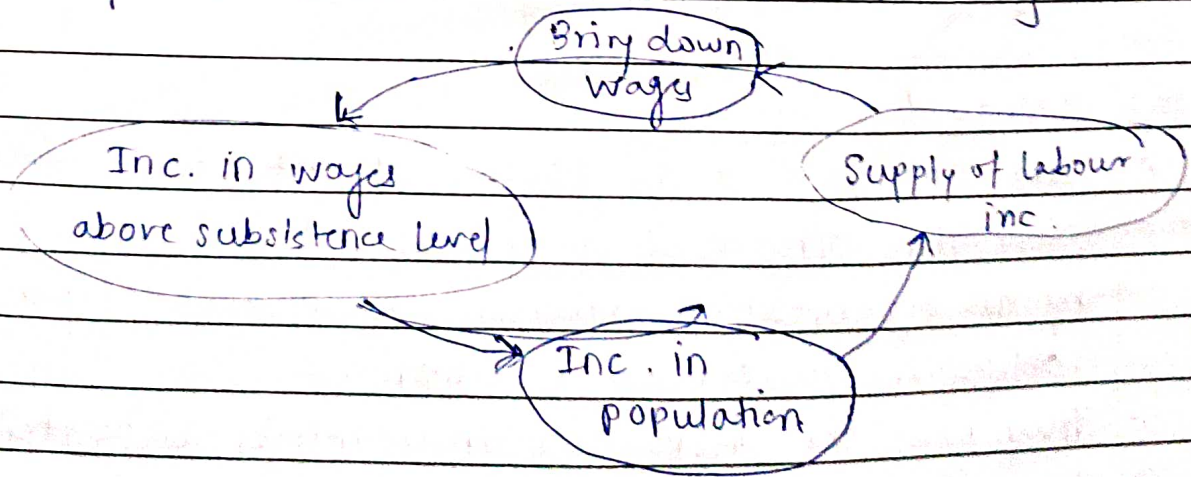 Bring down
wages
Inc. in wages
above subsistence level
Supply of labour
inc.
Inc. in
population